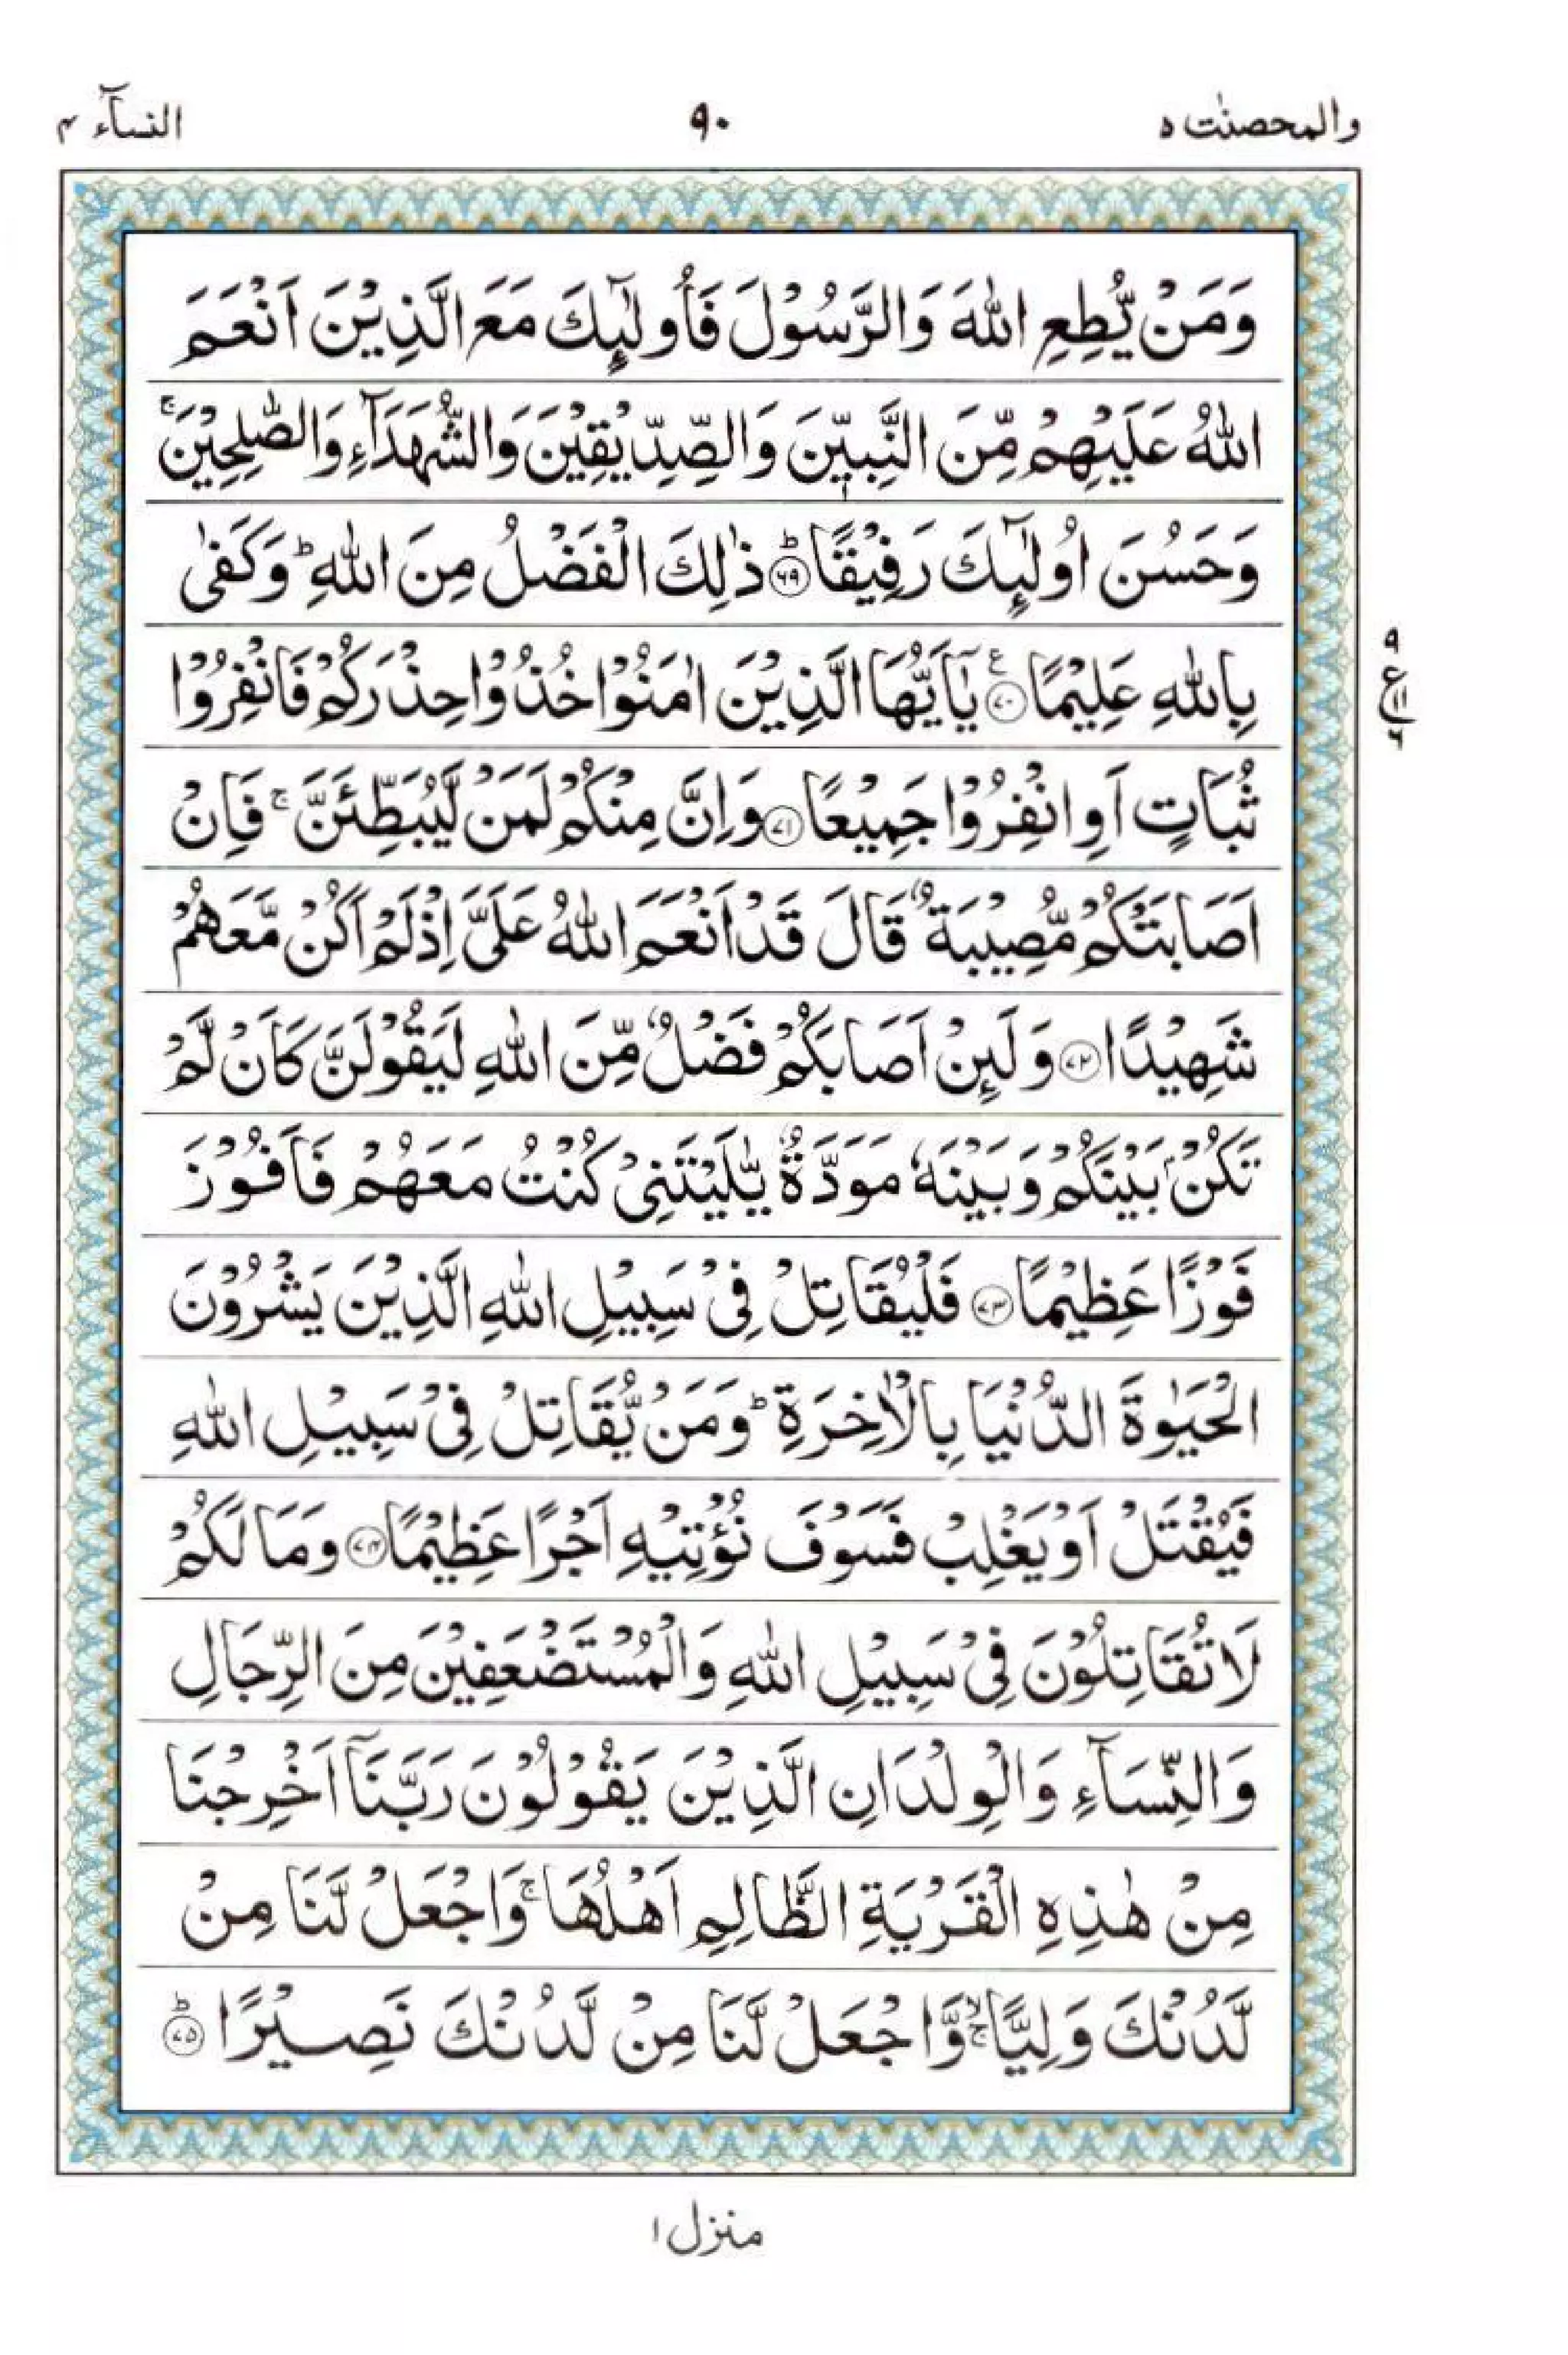 والمحصنٰت ۵
۹۰
النسآء ۴
وَمَنْ يُّطِعِ اللّٰهَ وَالرَّسُوْلَ فَاُولٰٓئِكَ مَعَ الَّذِيْنَ اَنْعَمَ
اللّٰهُ عَلَيْهِمْ مِّنَ النَّبِيّٖنَ وَالصِّدِّيْقِيْنَ وَالشُّهَدَآءِ وَالصّٰلِحِيْنَ ۚ
وَحَسُنَ اُولٰٓئِكَ رَفِيْقًا ؕ ﴿۶۹﴾ ذٰلِكَ الْفَضْلُ مِنَ اللّٰهِ ؕ وَكَفٰى
بِاللّٰهِ عَلِيْمًا ﴿۷۰﴾ ع يٰۤاَيُّهَا الَّذِيْنَ اٰمَنُوْا خُذُوْا حِذْرَكُمْ فَانْفِرُوْا
۹ ع ۱۱ ۶
ثُبَاتٍ اَوِ انْفِرُوْا جَمِيْعًا ﴿۷۱﴾ وَاِنَّ مِنْكُمْ لَمَنْ لَّيُبَطِّئَنَّ ۚ فَاِنْ
اَصَابَتْكُمْ مُّصِيْبَةٌ قَالَ قَدْ اَنْعَمَ اللّٰهُ عَلَيَّ اِذْ لَمْ اَكُنْ مَّعَهُمْ
شَهِيْدًا ﴿۷۲﴾ وَلَئِنْ اَصَابَكُمْ فَضْلٌ مِّنَ اللّٰهِ لَيَقُوْلَنَّ كَاَنْ لَّمْ
تَكُنْۢ بَيْنَكُمْ وَبَيْنَهٗ مَوَدَّةٌ يّٰلَيْتَنِيْ كُنْتُ مَعَهُمْ فَاَفُوْزَ
فَوْزًا عَظِيْمًا ﴿۷۳﴾ فَلْيُقَاتِلْ فِيْ سَبِيْلِ اللّٰهِ الَّذِيْنَ يَشْرُوْنَ
الْحَيٰوةَ الدُّنْيَا بِالْاٰخِرَةِ ؕ وَمَنْ يُّقَاتِلْ فِيْ سَبِيْلِ اللّٰهِ
فَيُقْتَلْ اَوْ يَغْلِبْ فَسَوْفَ نُؤْتِيْهِ اَجْرًا عَظِيْمًا ﴿۷۴﴾ وَمَا لَكُمْ
لَا تُقَاتِلُوْنَ فِيْ سَبِيْلِ اللّٰهِ وَالْمُسْتَضْعَفِيْنَ مِنَ الرِّجَالِ
وَالنِّسَآءِ وَالْوِلْدَانِ الَّذِيْنَ يَقُوْلُوْنَ رَبَّنَاۤ اَخْرِجْنَا
مِنْ هٰذِهِ الْقَرْيَةِ الظَّالِمِ اَهْلُهَا ۚ وَاجْعَلْ لَّنَا مِنْ
لَّدُنْكَ وَلِيًّا ۙۚ وَّاجْعَلْ لَّنَا مِنْ لَّدُنْكَ نَصِيْرًا ؕ ﴿۷۵﴾
منزل ۱